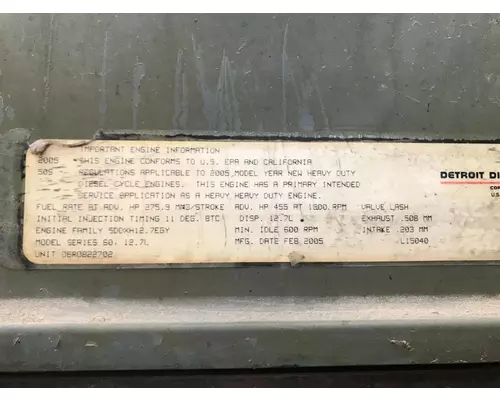 IMPORTANT ENGINE INFORMATION
2005 THIS ENGINE CONFORMS TO U.S. EPA AND CALIFORNIA
505 REGULATIONS APPLICABLE TO 2005 MODEL YEAR NEW HEAVY DUTY
DIESEL CYCLE ENGINES. THIS ENGINE HAS A PRIMARY INTENDED
SERVICE APPLICATION AS A HEAVY HEAVY DUTY ENGINE.
DETROIT DI
COR
U.S.
FUEL RATE AT ADV. HP 275.9 MM3/STROKE ADV. HP 455 AT 1800 RPM VALVE LASH
INITIAL INJECTION TIMING 11 DEG. BTC DISP. 12.7L EXHAUST .508 MM
ENGINE FAMILY 5DDXH12.7EGY MIN. IDLE 600 RPM INTAKE .203 MM
MODEL SERIES 60, 12.7L MFG. DATE FEB 2005 L15040
UNIT 06R0822702